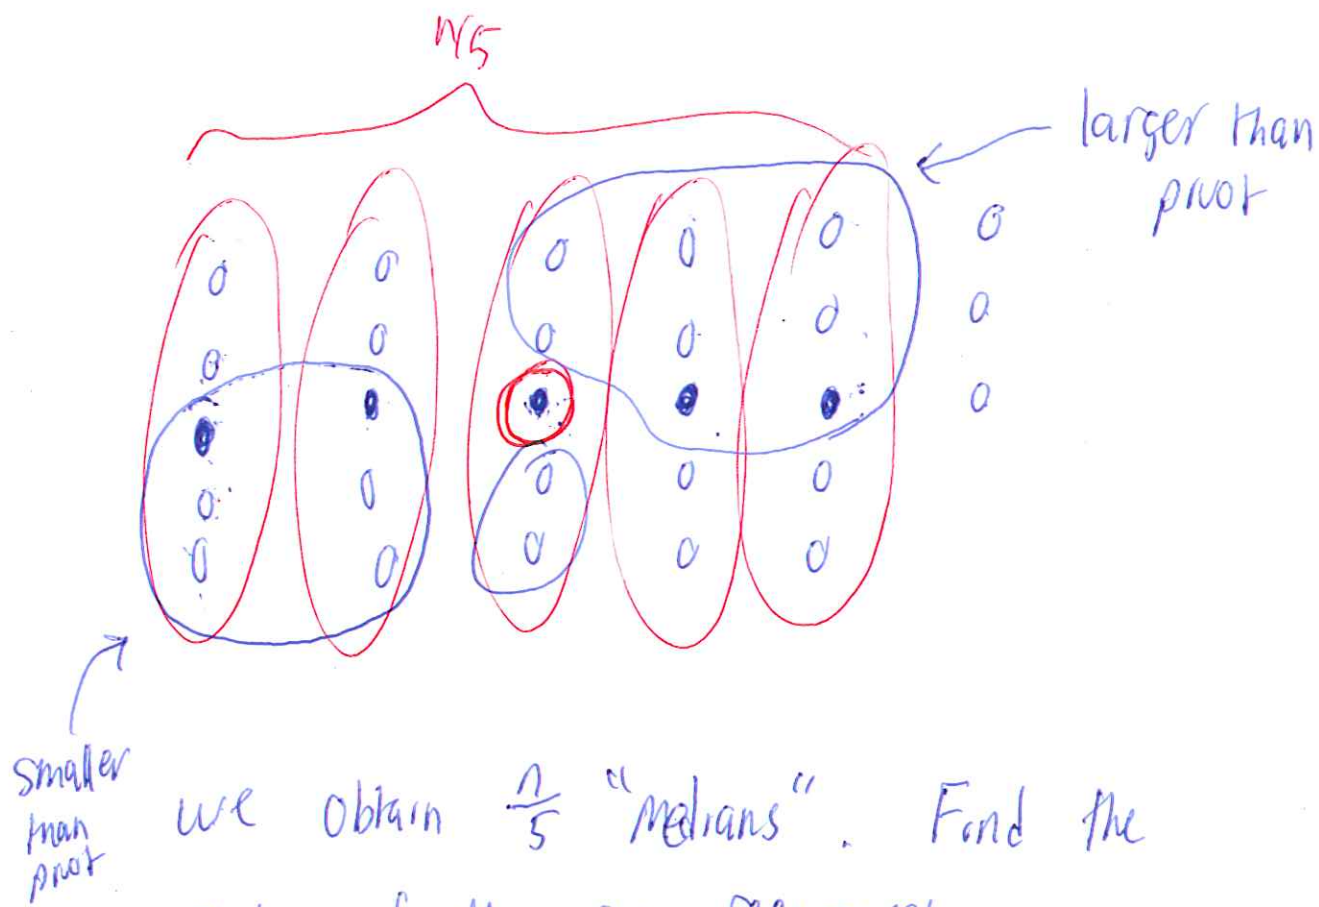 n/5
larger than
pivot
smaller
than
pivot
we obtain n/5 "medians". Find the